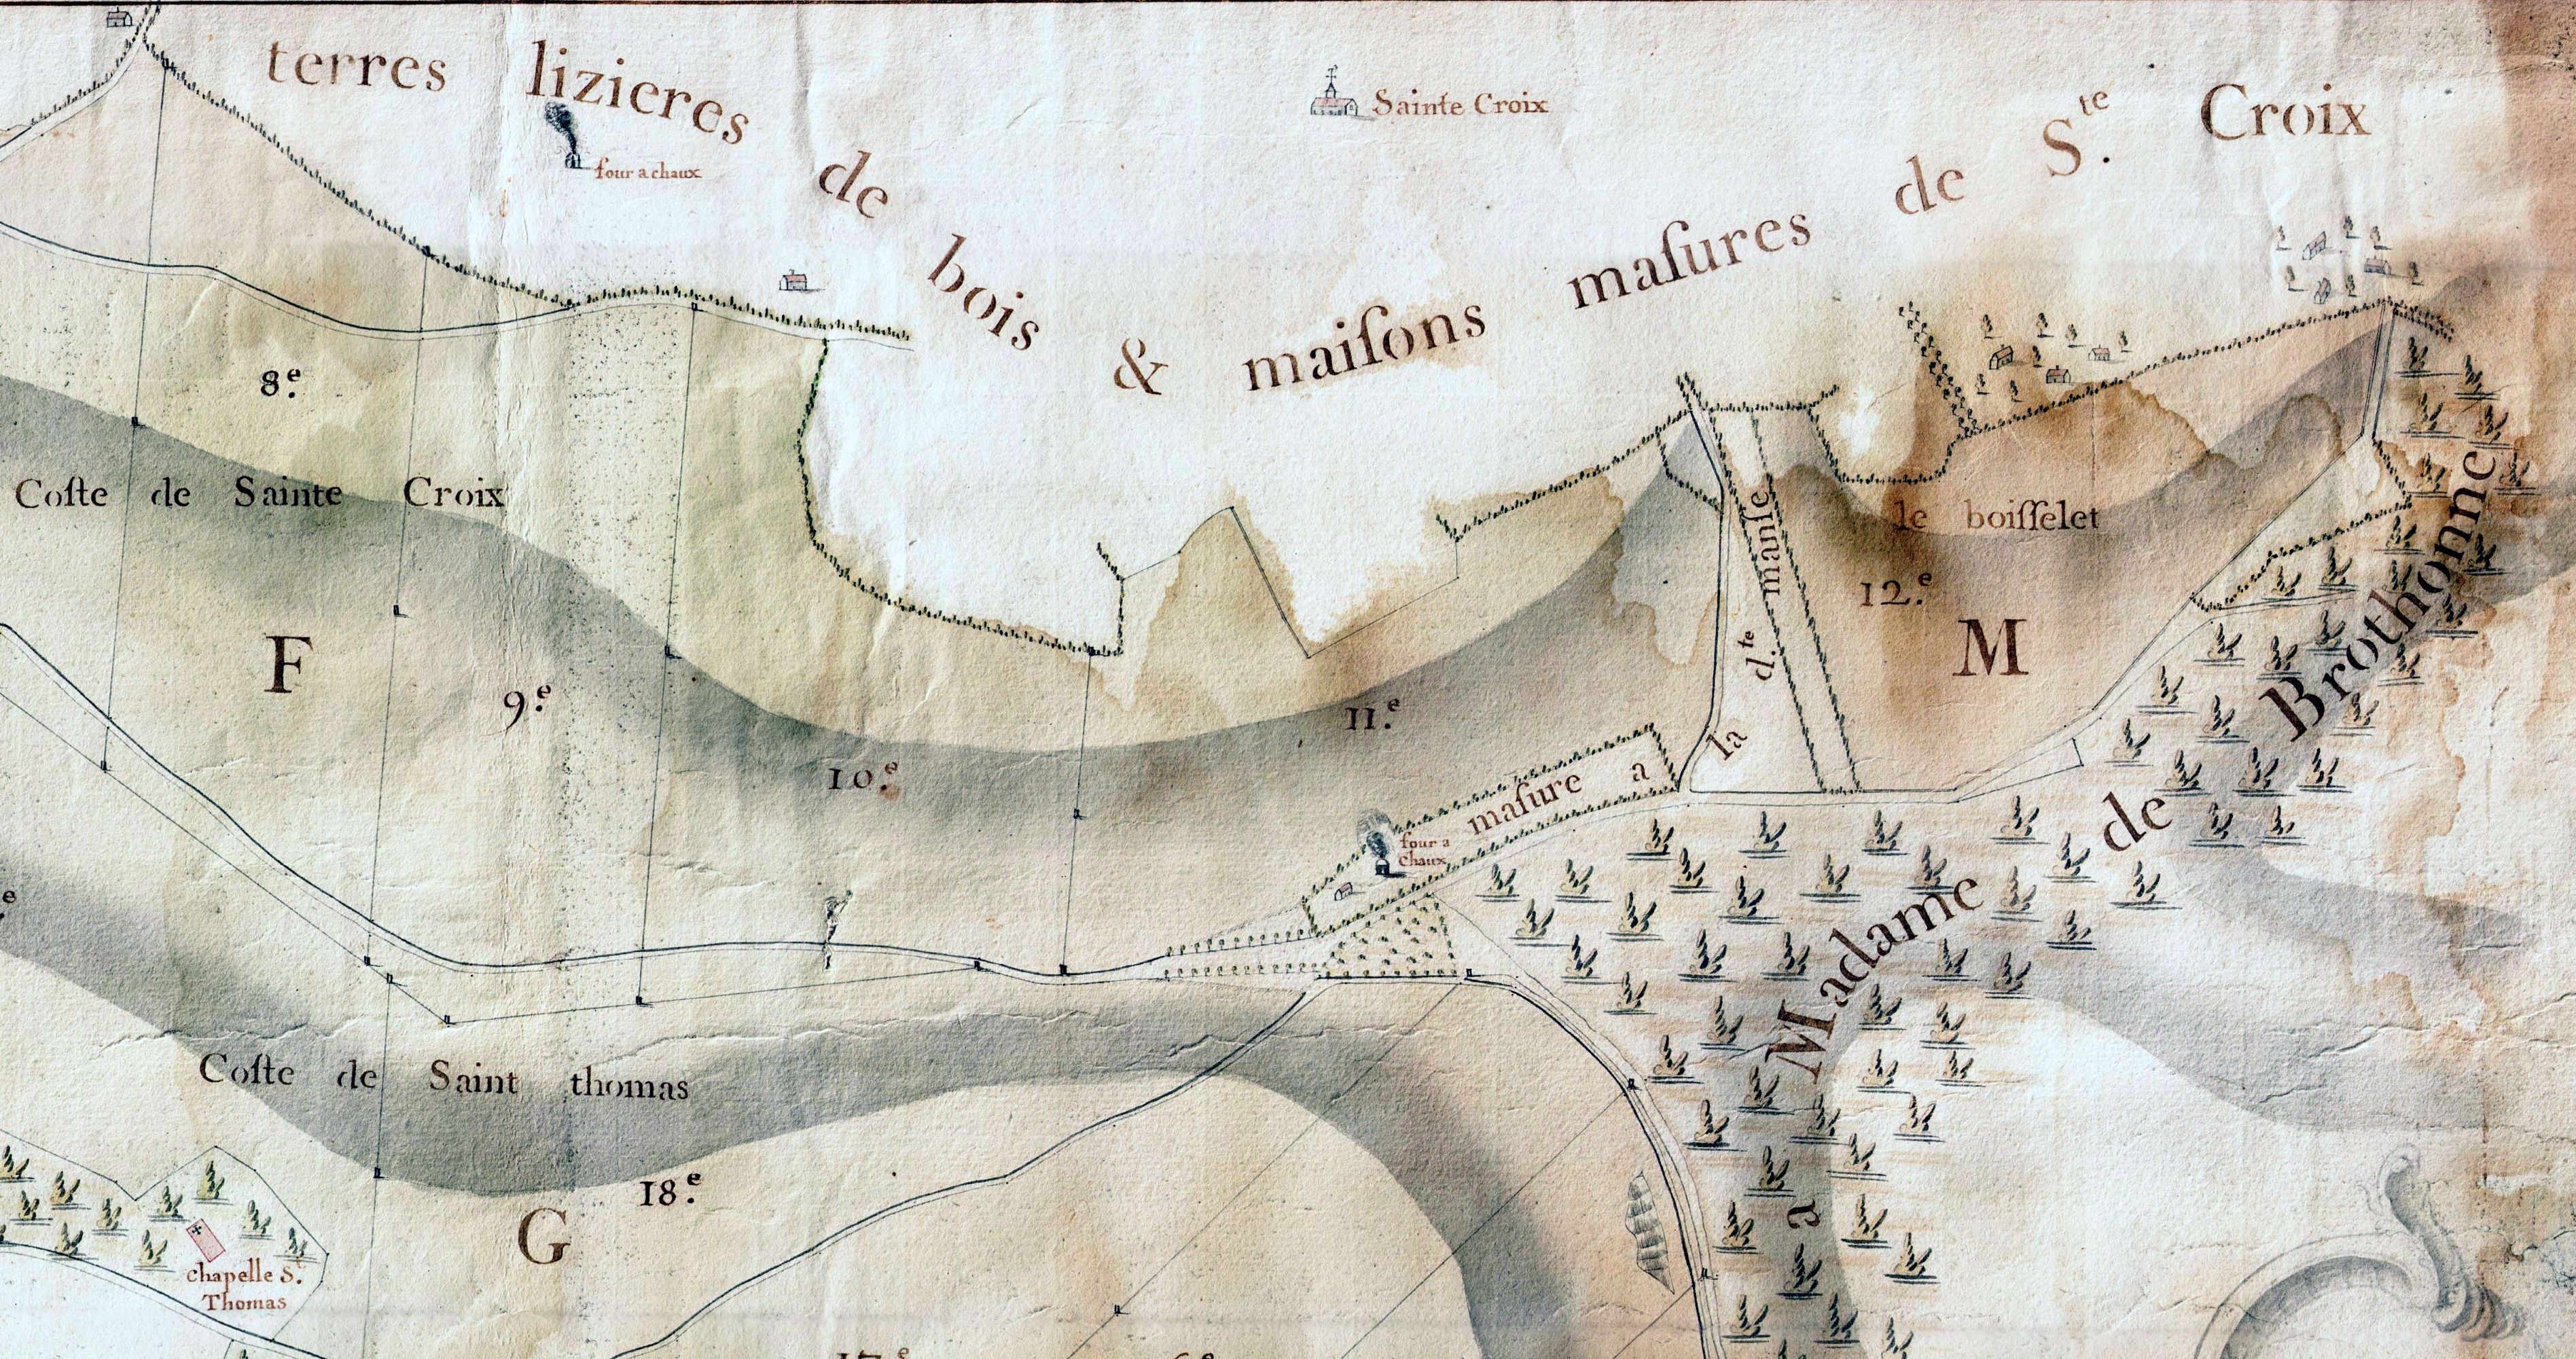 terres lizieres de bois & maiſons maſures de S.te Croix
four a chaux
Sainte Croix
8.e
Coſte de Sainte Croix
le boiſſelet
12.e
F
M
9.e
11.e
10.e
maſure a la d.te manſe
four a
chaux
a Madame de Brothonne
Coſte de Saint thomas
18.e
G
chapelle S.t
Thomas